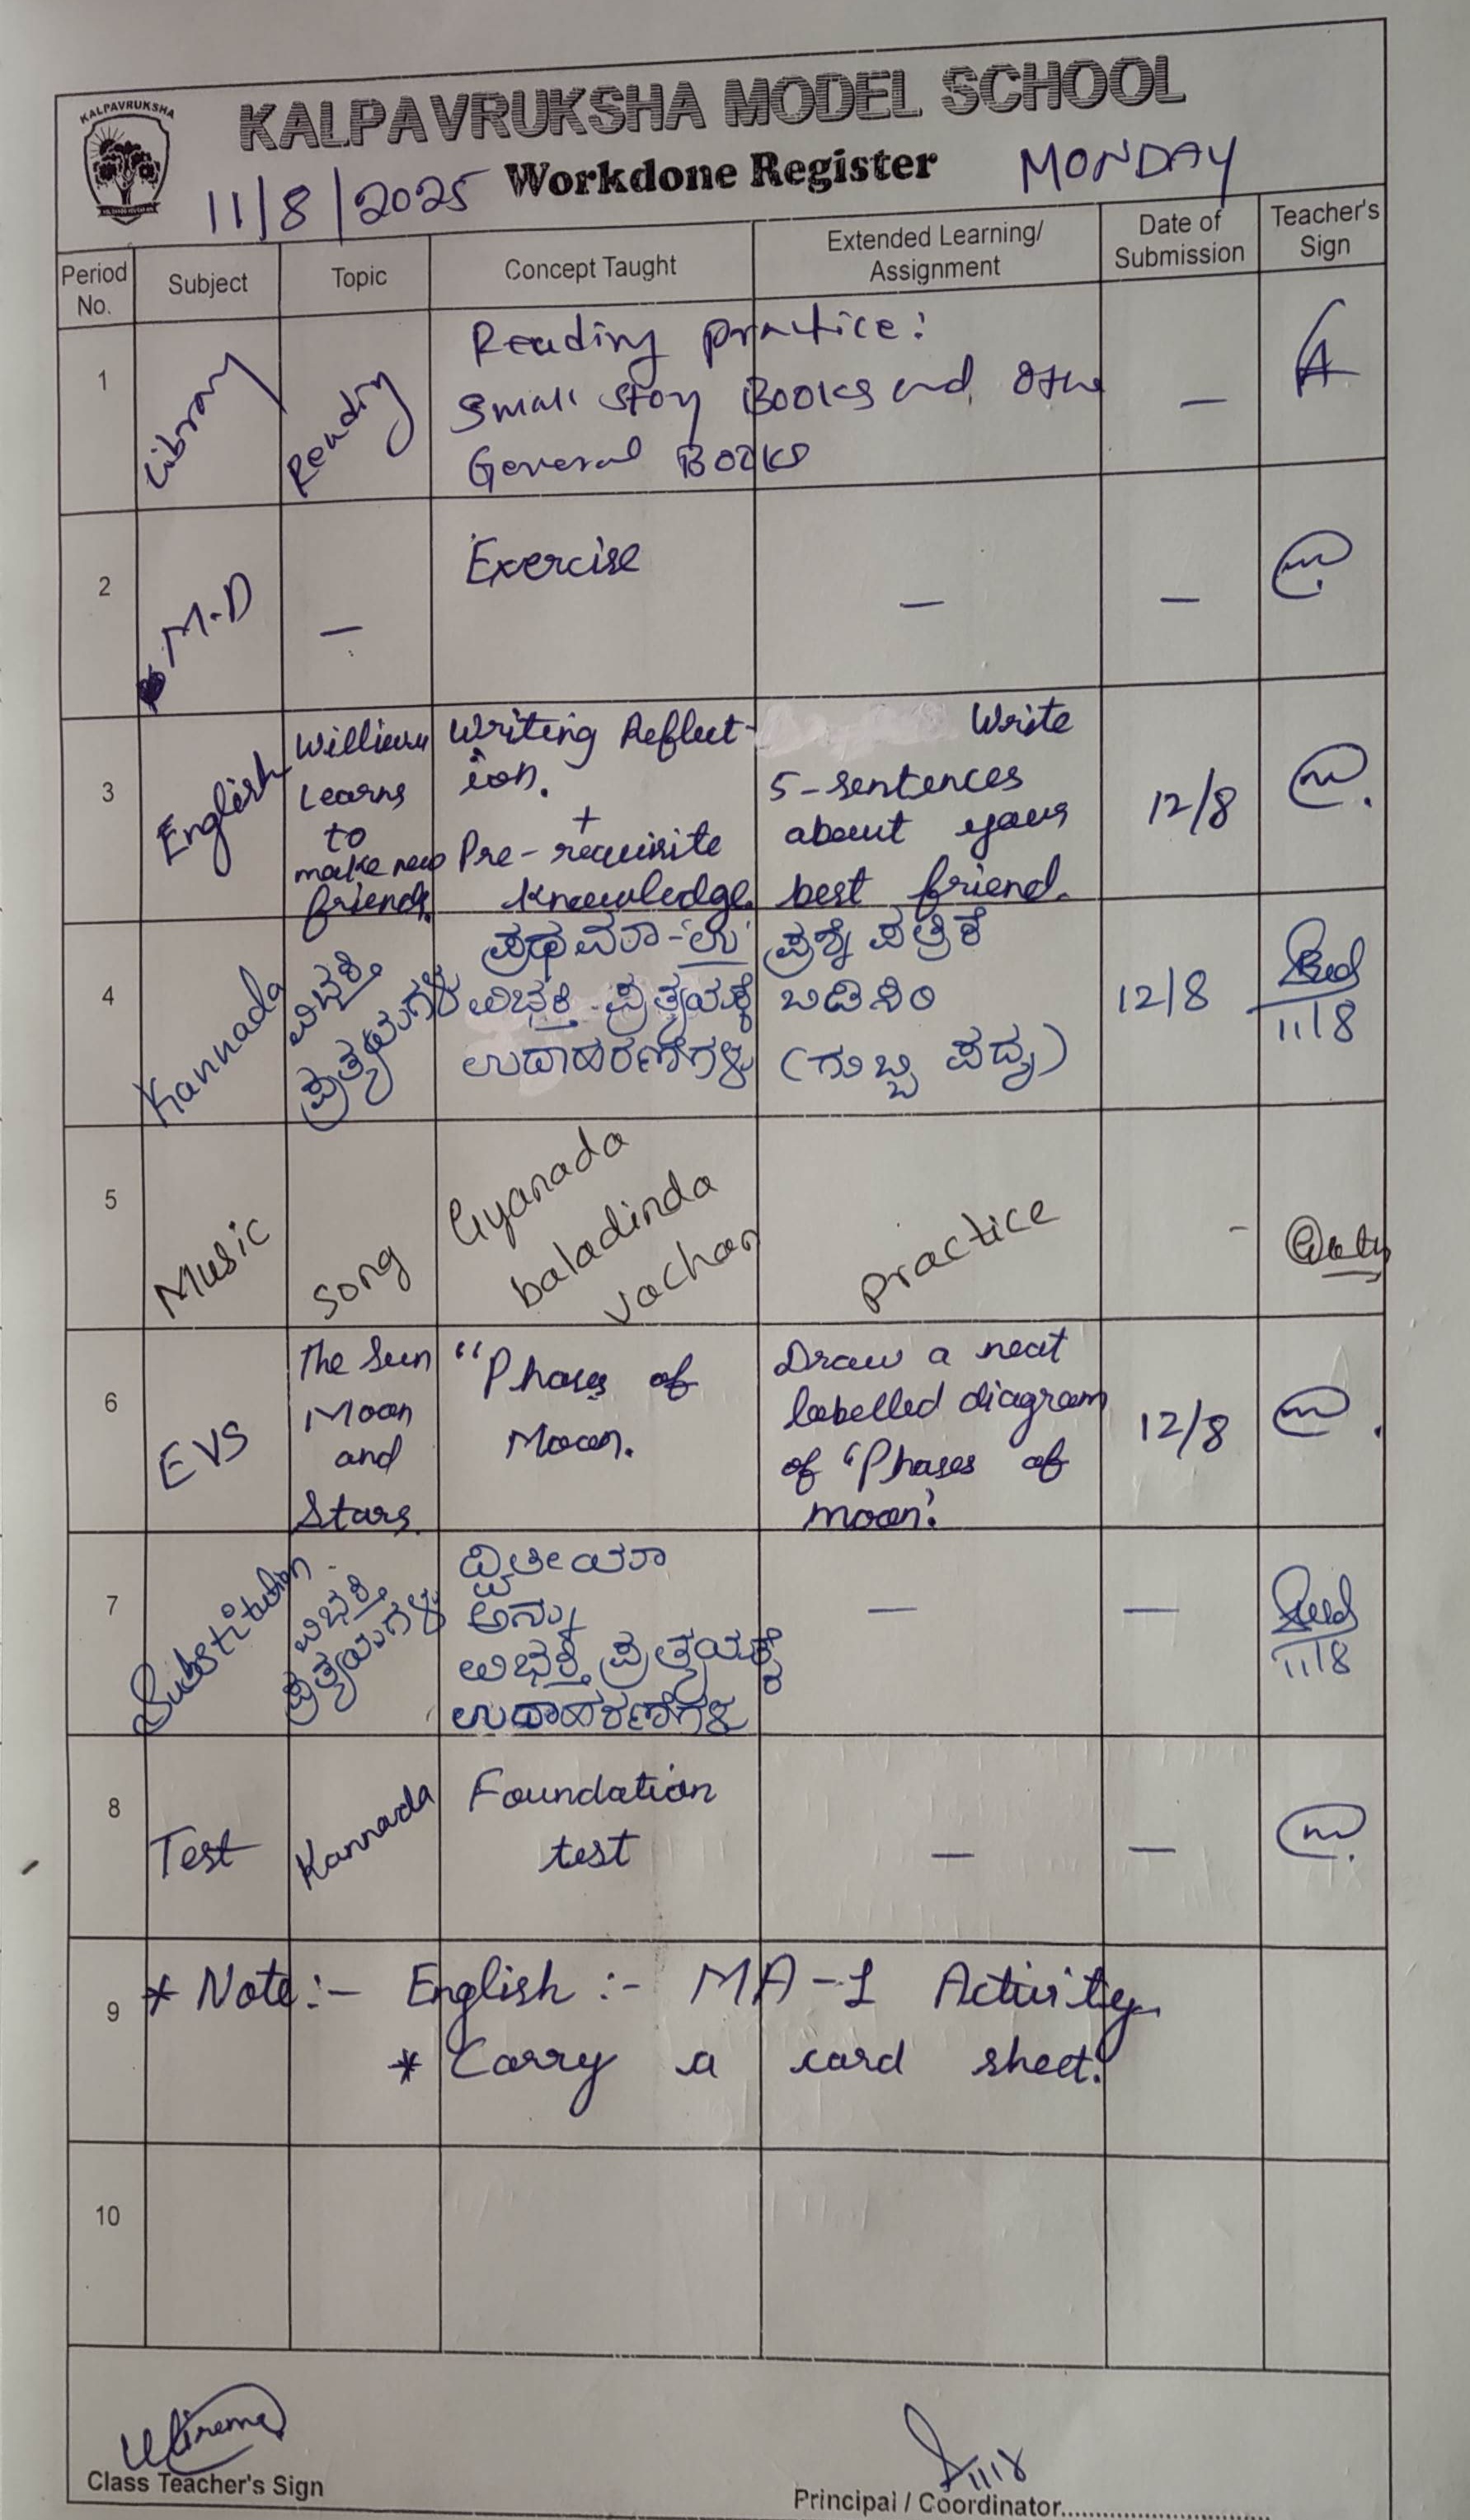 KALPAVRUKSHA
KALPAVRUKSHA MODEL SCHOOL
11/8/2025 Workdone Register MONDAY
Period No.
Subject
Topic
Concept Taught
Extended Learning/
Assignment
Date of
Submission
Teacher's
Sign
1
Library
Reading
Reading practice:
Small story Books and other
General Books
—
2
M.D
—
Exercise
—
—
3
English
William
Learns
to
make new
friends.
Writing Reflect-
ion.
+
Pre-requisite
knowledge.
Write
5-sentences
about your
best friend.
12/8
4
Kannada
ವಿಭಕ್ತಿ
ಪ್ರತ್ಯಯಗಳು
ಪ್ರಥಮಾ-'ಉ'
ವಿಭಕ್ತಿ ಪ್ರತ್ಯಯಕ್ಕೆ
ಉದಾಹರಣೆಗಳು
ಪ್ರಶ್ನೆ ಪತ್ರಿಕೆ
ಬಿಡಿಸಿರಿ
(ಗುಬ್ಬಿ ಪದ್ಯ)
12/8
11/8
5
Music
Song
Gyanada
baladinda
vachan
practice
-
6
EVS
The Sun
Moon
and
Stars.
"Phases of
Moon.
Draw a neat
labelled diagram
of "Phases of
moon".
12/8
7
Substitution
ವಿಭಕ್ತಿ
ಪ್ರತ್ಯಯಗಳು
ದ್ವಿತೀಯಾ
ಅನ್ನು
ವಿಭಕ್ತಿ ಪ್ರತ್ಯಯಕ್ಕೆ
ಉದಾಹರಣೆಗಳು
—
—
11/8
8
Test
Kannada
Foundation
test
—
—
9
* Note:- English :- MA-1 Activity
* Carry a card sheet.
10
11/8
Class Teacher's Sign
Principal / Coordinator..............................